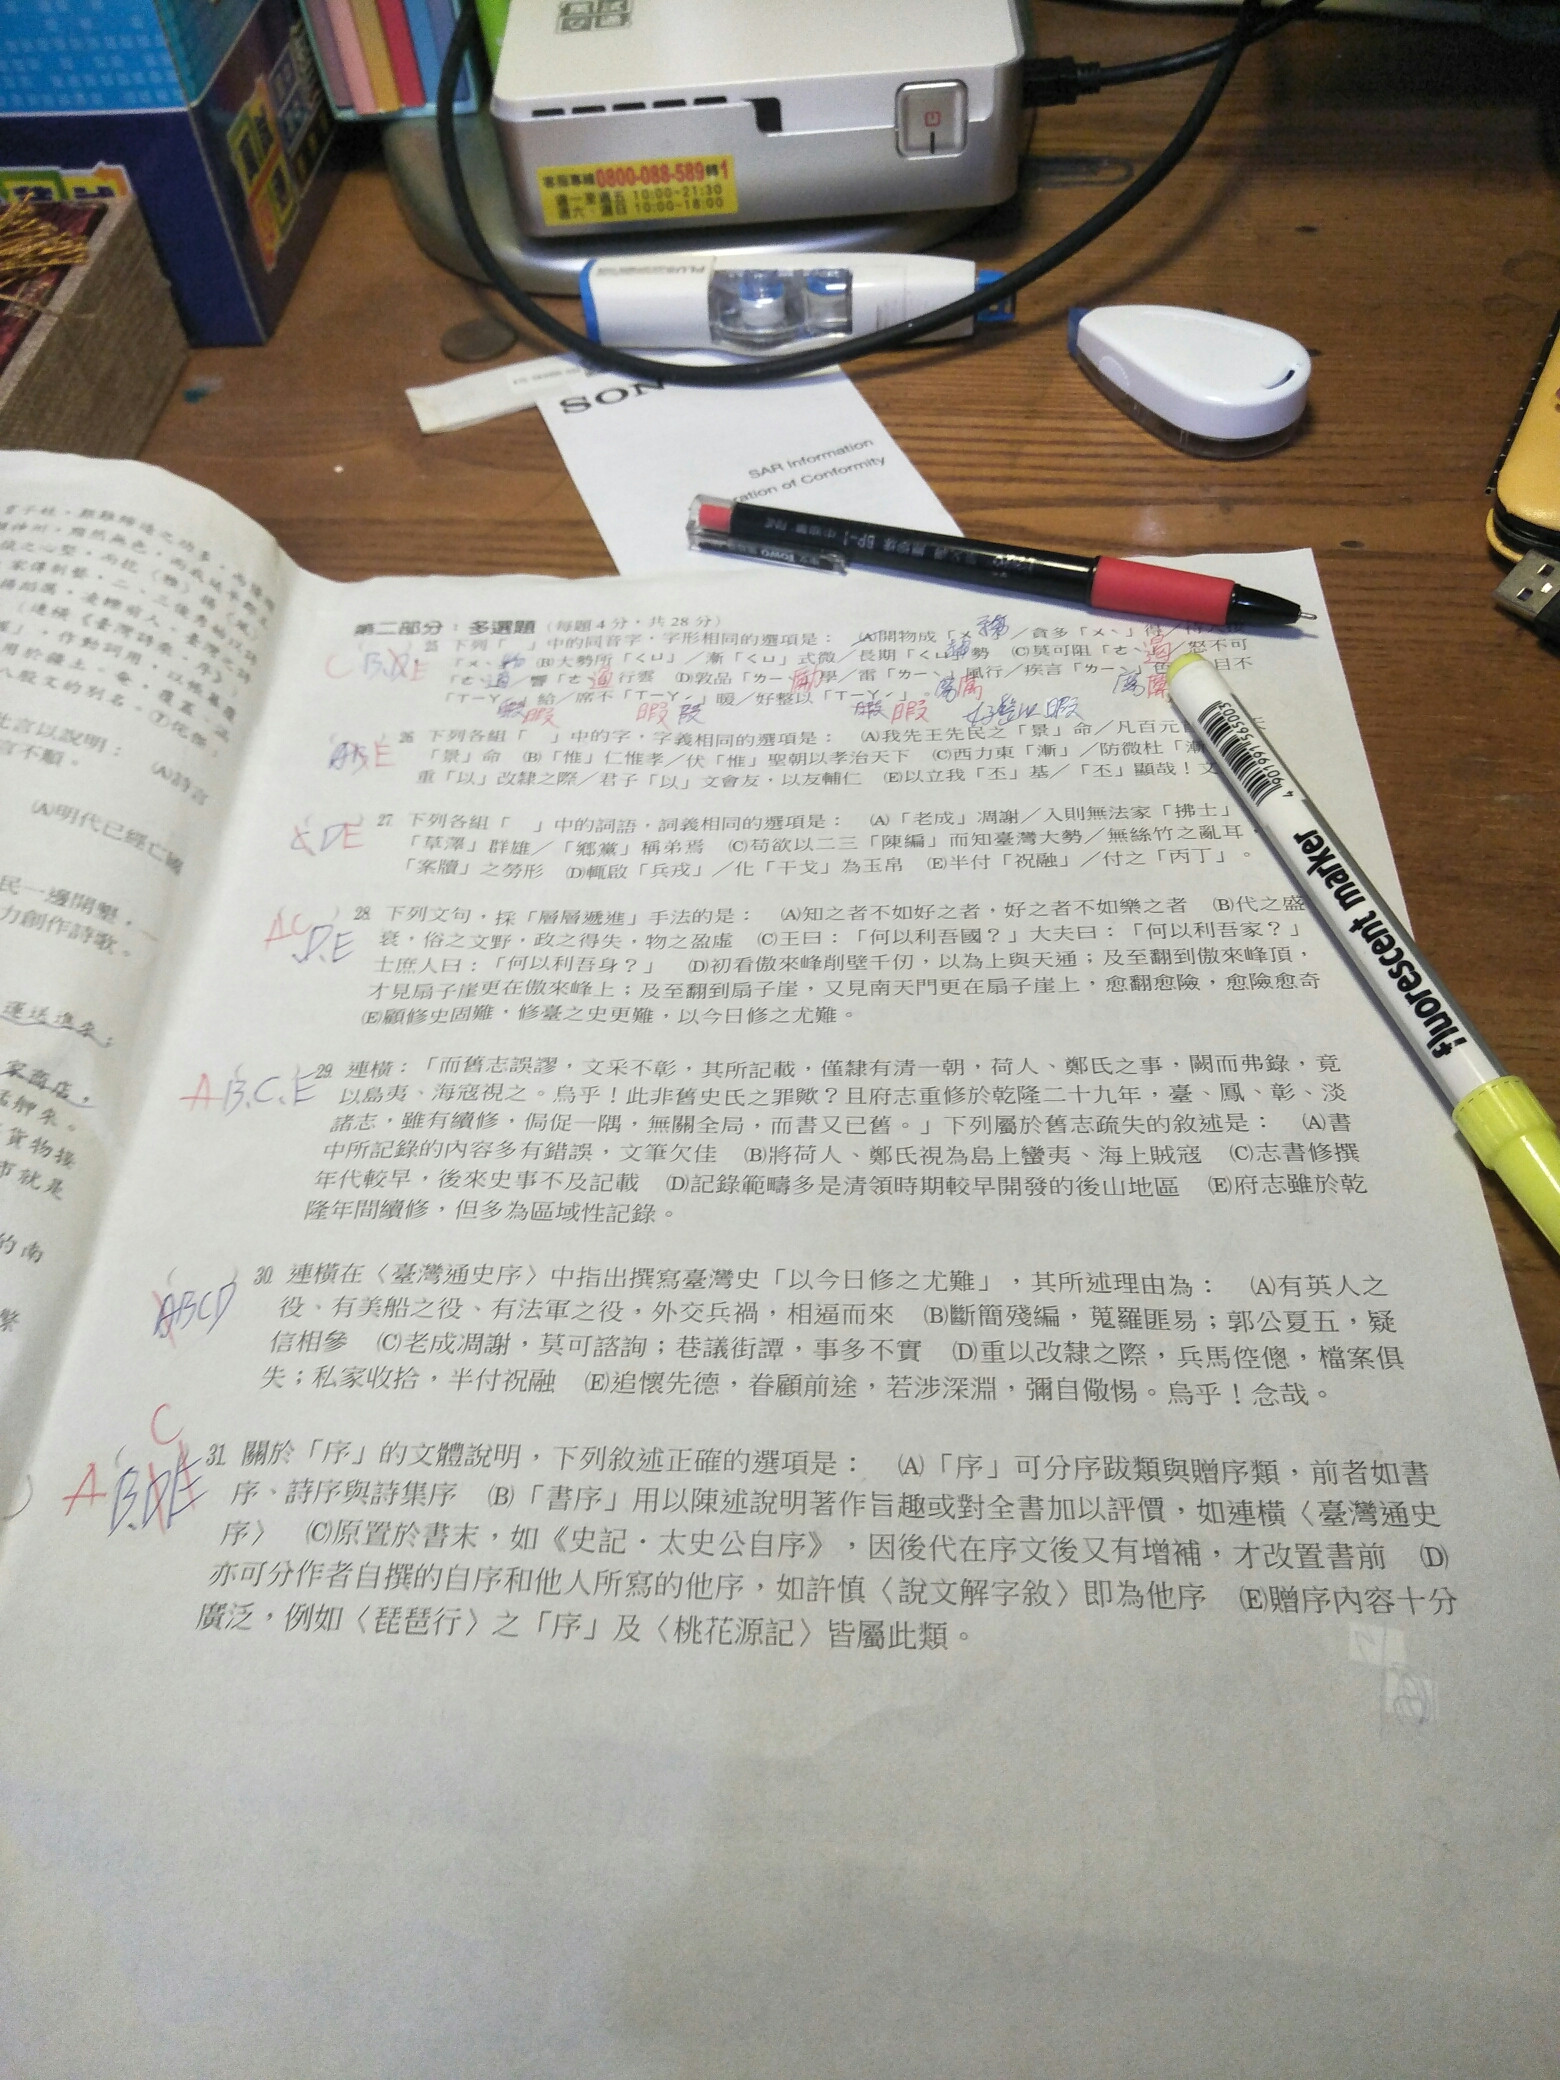 客服專線0800-088-589轉1
週一至週五 10:00~21:30
週六、週日 10:00~18:00
PLUS
SON
SAR Information
ration of Conformity
fluorescent marker
4 901991 565003
(A)詩言
(A)明代已經亡國
民一邊開墾，
力創作詩歌。
運送進來；
家商店，
貨物接
市就是
的南
第二部分：多選題（每題4分，共28分）
C B.D.E
25 下列「　」中的同音字，字形相同的選項是： (A)開物成「ㄨˋ」／貪多「ㄨˋ」得／
「ㄨˋ (B)大勢所「ㄑㄩ」／漸「ㄑㄩ」式微／長期「ㄑㄩ」勢 (C)莫可阻「ㄜˋ」／怒不可
「ㄜˋ」／響「ㄜˋ」行雲 (D)敦品「ㄌㄧˋ」學／雷「ㄌㄧˋ」風行／疾言「ㄌㄧˋ」色 目不
「ㄒㄧㄚˊ」給／席不「ㄒㄧㄚˊ」暖／好整以「ㄒㄧㄚˊ」。
暇 暇 暇 好整以暇
ABE
26 下列各組「　」中的字，字義相同的選項是： (A)我先王先民之「景」命／凡百元
「景」命 (B)「惟」仁惟孝／伏「惟」聖朝以孝治天下 (C)西力東「漸」／防微杜「漸
重「以」改隸之際／君子「以」文會友，以友輔仁 (E)以立我「丕」基／「丕」顯哉！文
CDE
27 下列各組「　」中的詞語，詞義相同的選項是： (A)「老成」凋謝／入則無法家「拂士」
「草澤」群雄／「鄉黨」稱弟焉 (C)苟欲以二三「陳編」而知臺灣大勢／無絲竹之亂耳，
「案牘」之勞形 (D)輒啟「兵戎」／化「干戈」為玉帛 (E)半付「祝融」／付之「丙丁」。
AC D.E
28 下列文句，採「層層遞進」手法的是： (A)知之者不如好之者，好之者不如樂之者 (B)代之盛
衰，俗之文野，政之得失，物之盈虛 (C)王曰：「何以利吾國？」大夫曰：「何以利吾家？」
士庶人曰：「何以利吾身？」 (D)初看傲來峰削壁千仞，以為上與天通；及至翻到傲來峰頂，
才見扇子崖更在傲來峰上；及至翻到扇子崖，又見南天門更在扇子崖上，愈翻愈險，愈險愈奇
(E)顧修史固難，修臺之史更難，以今日修之尤難。
AB.C.E
29 連橫：「而舊志誤謬，文采不彰，其所記載，僅隸有清一朝，荷人、鄭氏之事，闕而弗錄，竟
以島夷、海寇視之。烏乎！此非舊史氏之罪歟？且府志重修於乾隆二十九年，臺、鳳、彰、淡
諸志，雖有續修，侷促一隅，無關全局，而書又已舊。」下列屬於舊志疏失的敘述是： (A)書
中所記錄的內容多有錯誤，文筆欠佳 (B)將荷人、鄭氏視為島上蠻夷、海上賊寇 (C)志書修撰
年代較早，後來史事不及記載 (D)記錄範疇多是清領時期較早開發的後山地區 (E)府志雖於乾
隆年間續修，但多為區域性記錄。
ABCD
30 連橫在〈臺灣通史序〉中指出撰寫臺灣史「以今日修之尤難」，其所述理由為： (A)有英人之
役、有美船之役、有法軍之役，外交兵禍，相逼而來 (B)斷簡殘編，蒐羅匪易；郭公夏五，疑
信相參 (C)老成凋謝，莫可諮詢；巷議街譚，事多不實 (D)重以改隸之際，兵馬倥傯，檔案俱
失；私家收拾，半付祝融 (E)追懷先德，眷顧前途，若涉深淵，彌自儆惕。烏乎！念哉。
C
AB.DE
31 關於「序」的文體說明，下列敘述正確的選項是： (A)「序」可分序跋類與贈序類，前者如書
序、詩序與詩集序 (B)「書序」用以陳述說明著作旨趣或對全書加以評價，如連橫〈臺灣通史
序〉 (C)原置於書末，如《史記．太史公自序》，因後代在序文後又有增補，才改置書前 (D)
亦可分作者自撰的自序和他人所寫的他序，如許慎〈說文解字敘〉即為他序 (E)贈序內容十分
廣泛，例如〈琵琶行〉之「序」及〈桃花源記〉皆屬此類。